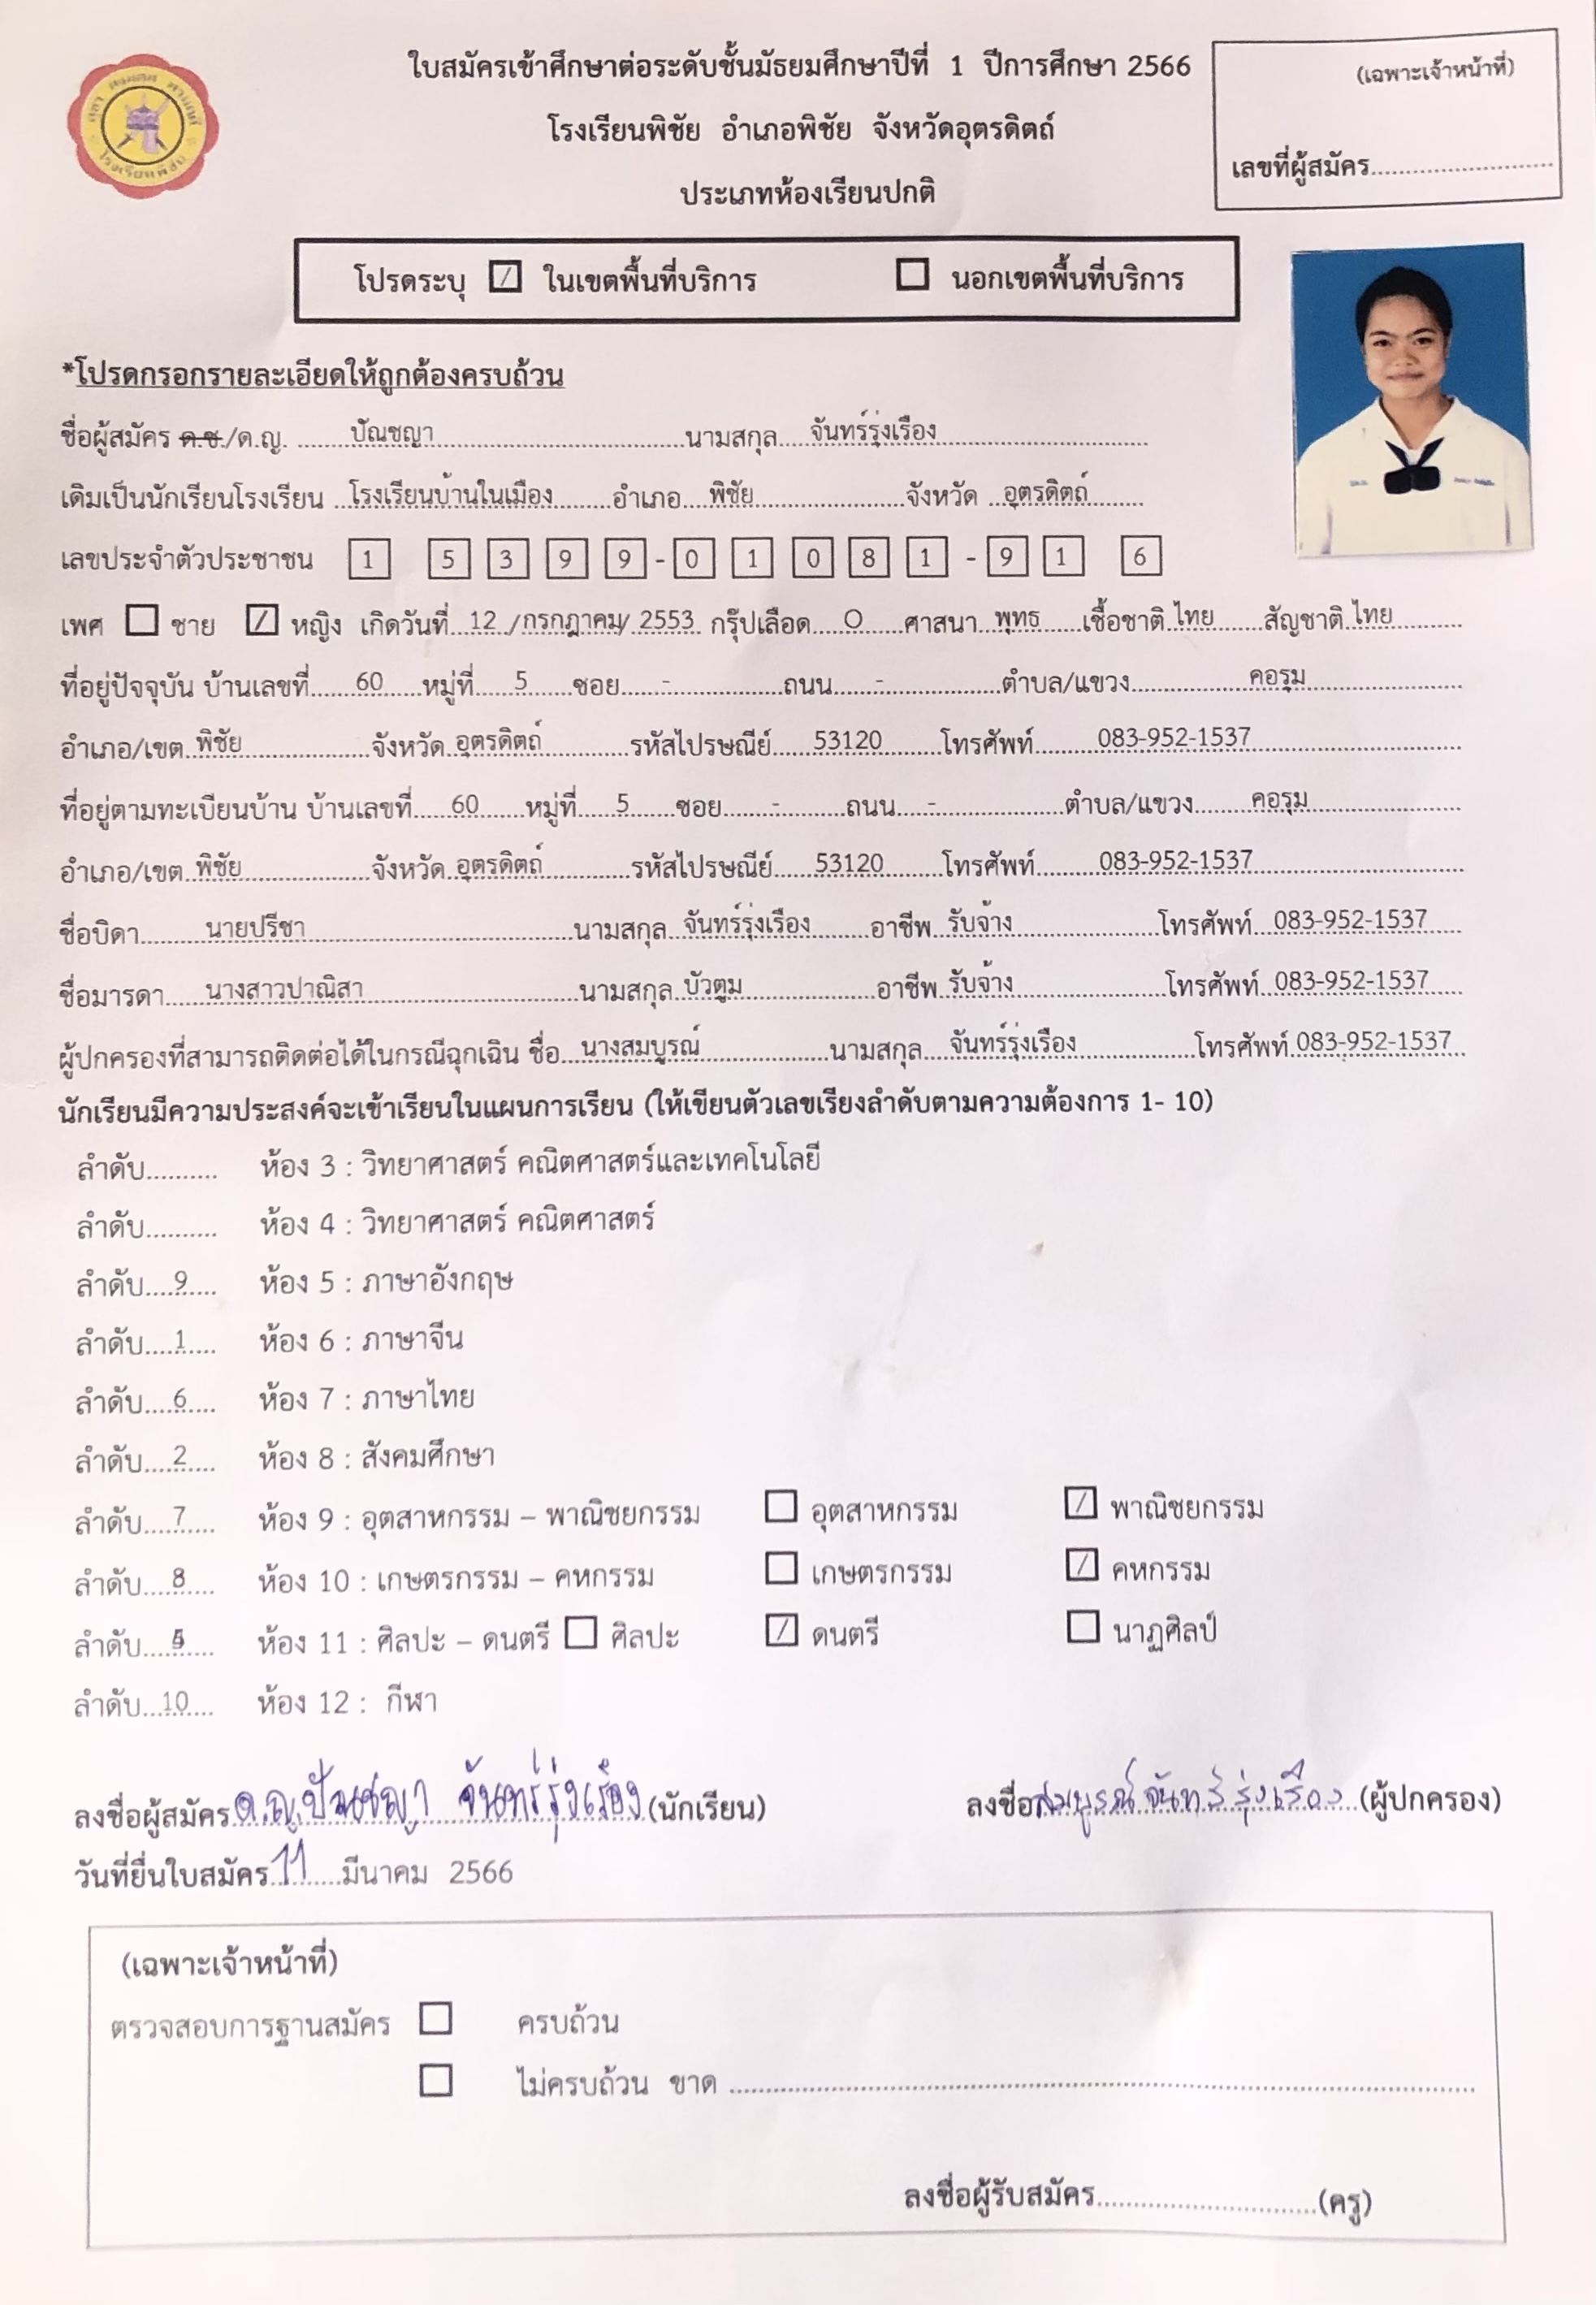 ใบสมัครเข้าศึกษาต่อระดับชั้นมัธยมศึกษาปีที่ 1 ปีการศึกษา 2566
(เฉพาะเจ้าหน้าที่)
โรงเรียนพิชัย อำเภอพิชัย จังหวัดอุตรดิตถ์
เลขที่ผู้สมัคร..........................
ประเภทห้องเรียนปกติ
โรงเรียนพิชัย
โปรดระบุ ☑ ในเขตพื้นที่บริการ ☐ นอกเขตพื้นที่บริการ
*โปรดกรอกรายละเอียดให้ถูกต้องครบถ้วน
ชื่อผู้สมัคร ด.ช./ด.ญ. ปัณชญา นามสกุล จันทร์รุ่งเรือง
เดิมเป็นนักเรียนโรงเรียน โรงเรียนบ้านในเมือง อำเภอ พิชัย จังหวัด อุตรดิตถ์
เลขประจำตัวประชาชน 1 5 3 9 9 - 0 1 0 8 1 - 9 1 6
เพศ ☐ ชาย ☑ หญิง เกิดวันที่ 12 /กรกฎาคม/ 2553 กรุ๊ปเลือด O ศาสนา พุทธ เชื้อชาติ ไทย สัญชาติ ไทย
ที่อยู่ปัจจุบัน บ้านเลขที่ 60 หมู่ที่ 5 ซอย - ถนน - ตำบล/แขวง คอรุม
อำเภอ/เขต พิชัย จังหวัด อุตรดิตถ์ รหัสไปรษณีย์ 53120 โทรศัพท์ 083-952-1537
ที่อยู่ตามทะเบียนบ้าน บ้านเลขที่ 60 หมู่ที่ 5 ซอย - ถนน - ตำบล/แขวง คอรุม
อำเภอ/เขต พิชัย จังหวัด อุตรดิตถ์ รหัสไปรษณีย์ 53120 โทรศัพท์ 083-952-1537
ชื่อบิดา นายปรีชา นามสกุล จันทร์รุ่งเรือง อาชีพ รับจ้าง โทรศัพท์ 083-952-1537
ชื่อมารดา นางสาวปาณิสา นามสกุล บัวตูม อาชีพ รับจ้าง โทรศัพท์ 083-952-1537
ผู้ปกครองที่สามารถติดต่อได้ในกรณีฉุกเฉิน ชื่อ นางสมบูรณ์ นามสกุล จันทร์รุ่งเรือง โทรศัพท์ 083-952-1537
นักเรียนมีความประสงค์จะเข้าเรียนในแผนการเรียน (ให้เขียนตัวเลขเรียงลำดับตามความต้องการ 1- 10)
ลำดับ.......... ห้อง 3 : วิทยาศาสตร์ คณิตศาสตร์และเทคโนโลยี
ลำดับ.......... ห้อง 4 : วิทยาศาสตร์ คณิตศาสตร์
ลำดับ 9 ห้อง 5 : ภาษาอังกฤษ
ลำดับ 1 ห้อง 6 : ภาษาจีน
ลำดับ 6 ห้อง 7 : ภาษาไทย
ลำดับ 2 ห้อง 8 : สังคมศึกษา
ลำดับ 7 ห้อง 9 : อุตสาหกรรม – พาณิชยกรรม ☐ อุตสาหกรรม ☑ พาณิชยกรรม
ลำดับ 8 ห้อง 10 : เกษตรกรรม – คหกรรม ☐ เกษตรกรรม ☑ คหกรรม
ลำดับ ห้อง 11 : ศิลปะ – ดนตรี ☐ ศิลปะ ☑ ดนตรี ☐ นาฏศิลป์
ลำดับ 10 ห้อง 12 : กีฬา
ลงชื่อผู้สมัคร ด.ญ.ปัณชญา จันทร์รุ่งเรือง (นักเรียน) ลงชื่อ สมบูรณ์ จันทร์รุ่งเรือง (ผู้ปกครอง)
วันที่ยื่นใบสมัคร 11 มีนาคม 2566
(เฉพาะเจ้าหน้าที่)
ตรวจสอบการฐานสมัคร ☐ ครบถ้วน
☐ ไม่ครบถ้วน ขาด ..........................
ลงชื่อผู้รับสมัคร..........................(ครู)